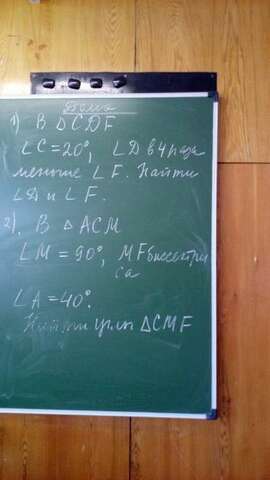 Дома
1) В △CDF
∠C=20°, ∠D в 4 раза
меньше ∠F. Найти
∠D и ∠F.
2). В △ACM
∠M = 90°, MF биссектри
са
∠A=40°.
Найти углы △CMF